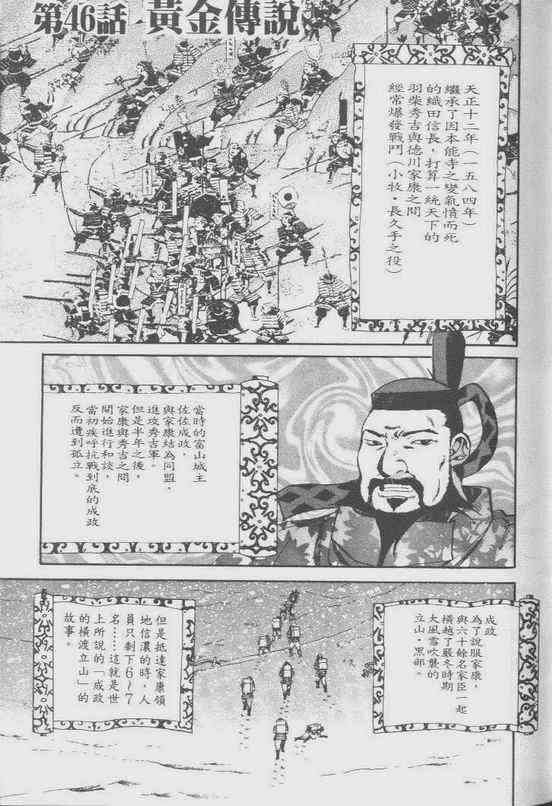 第46話 黃金傳說
天正十二年(一五八四年)
繼承了因本能寺之變氣憤而死
的織田信長，打算一統天下的
羽柴秀吉與德川家康之間
經常爆發戰鬥(小牧・長久手之役)
當時的富山城主
佐佐成政，
與家康結為同盟，
進攻秀吉軍。
但是半年之後，
家康與秀吉之間
開始進行和談，
當初疾呼抗戰到底的成政
反而遭到孤立。
成政
為了說服家康，
與六十餘名家臣一起
橫越了嚴冬時期
大風雪吹襲的
立山・黑部。
但是抵達家康領
地信濃的時，人
員只剩下6～7
名……這就是世
上所說的「成政
的橫渡立山」的
故事。